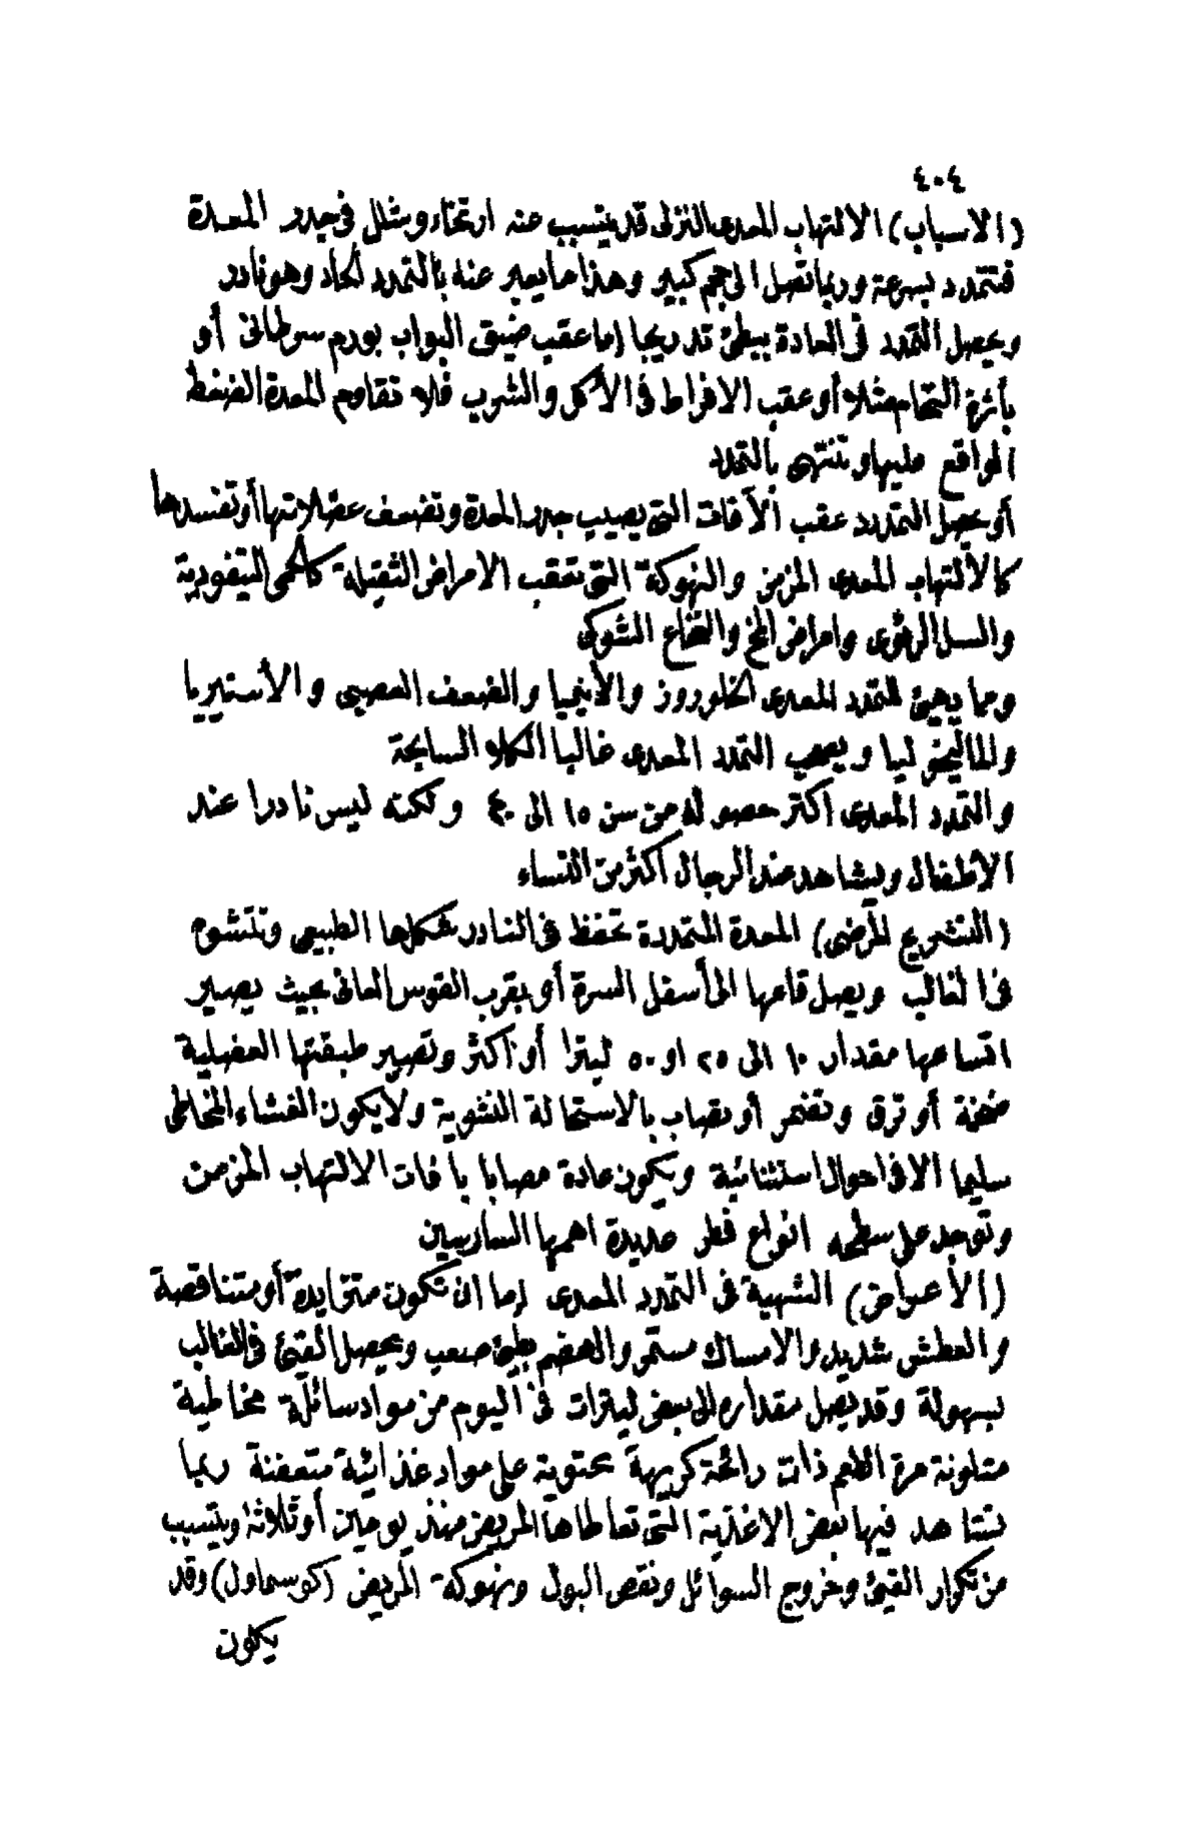 ٤٠٤
(الاسباب) الالتهاب المعدى النزلى قد يتسبب عنه ارتخاء وشلل فى جدر المعدة
فتتمدد بسرعة وربما تصل الى حجم كبير وهذا ما يعبر عنه بالتمدد الحاد وهو نادر
ويحصل التمدد فى العادة ببطئ تدريجا إما عقب ضيق البواب بورم سرطانى أو
بأثرة التحام مثلا أو عقب الافراط فى الأكل والشرب فلا تقاوم المعدة الضغط
الواقع عليها وتنتهى بالتمدد
أو يحصل التمدد عقب الآفات التى يصيب جدر المعدة وتضعف عضلاتها أو تفسدها
كالألتهاب المعدى المزمن والنهوكة التى تعقب الامراض الثقيلة كالحمى التيفودية
والسل الرئوى وامراض المخ والنخاع الشوكى
ومما يهيئ للتمدد المعدى الخلوروز والأنيميا والضعف العصبى والأستيريا
والماليخوليا ويصحب التمدد المعدى غالبا الكلا السابحة
والتمدد المعدى اكثر حصوله من سن ١٥ الى ٤٠ ولكنه ليس نادرا عند
الأطفال ويشاهد عند الرجال أكثر من النساء
(التشريع المرضى) المعدة المتمددة تحفظ فى النادر شكلها الطبيعى وتتشوم
فى الغالب ويصل قاعها الى أسفل السرة أو بقرب القوس العانى بحيث يصير
اتساعها مقدار ١٠ الى ٢٥ او ٥٠ ليترا أو أكثر وتصير طبقتها العضلية
ضخنة أو ترق وتضمر أو تصاب بالاستحالة النشوية ولا يكون الغشاء المخاطى
سليما الا فى احوال استثنائية ويكون عادة مصابا بآفات الالتهاب المزمن
وتوجد على سطحه انواع فطر عديدة اهمها السارسين
(الأعراض) الشهية فى التمدد المعدى إما ان تكون متزايدة أو متناقصة
والعطش شديد والامساك مستمر والهضم بطيئ صعب ويحصل القيئ فى الغالب
بسهولة وقد يصل مقداره الى بعض ليترات فى اليوم من مواد سائلة مخاطية
متلونة مرة الطعم ذات رائحة كريهة محتوية على مواد غذائية متعفنة ربما
تشاهد فيها بعض الاغذية التى تعاطاها المريض منذ يومين أو ثلاثة ويتسبب
من تكرار القيئ وخروج السوائل ونقص البول ونهوكة المريض (كوسماول) وقد
يكون